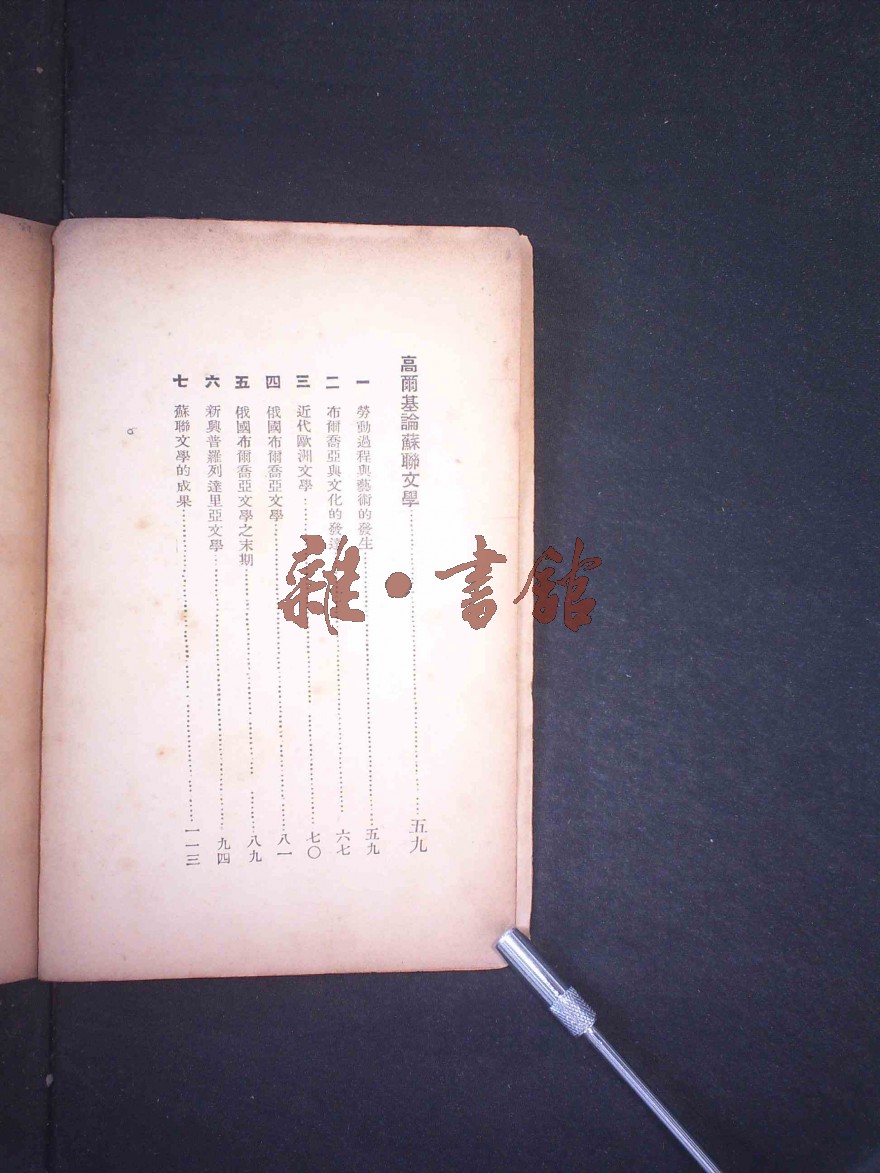 高爾基論蘇聯文學……五九
一 勞動過程與藝術的發生……五九
二 布爾喬亞與文化的發達……六七
三 近代歐洲文學……七〇
四 俄國布爾喬亞文學……八一
五 俄國布爾喬亞文學之末期……八九
六 新興普羅列達里亞文學……九四
七 蘇聯文學的成果……一一三
雜·書館